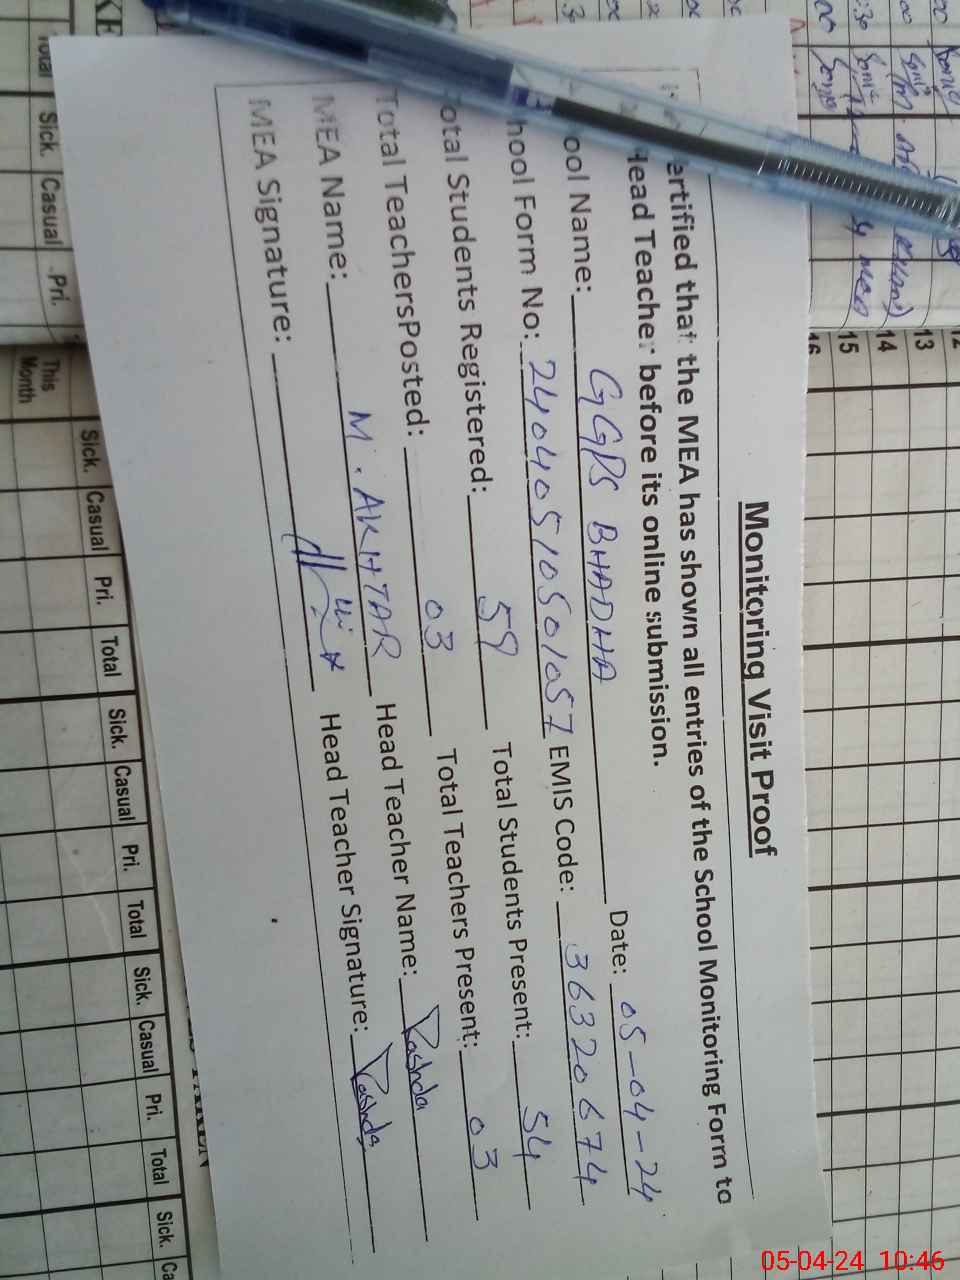 Monitoring Visit Proof
ertified that the MEA has shown all entries of the School Monitoring Form to
Head Teacher before its online submission.
ool Name: GGPS BHADHA Date: 05-04-24
hool Form No: 24040510501057 EMIS Code: 36320674
otal Students Registered: 59 Total Students Present: 54
Total TeachersPosted: 03 Total Teachers Present: 03
MEA Name: M. AKHTAR Head Teacher Name: Rashda
MEA Signature: Head Teacher Signature: Rashda
12
13
14
15
16
Total Sick. Casual Pri.
This Month
Sick. Casual Pri. Total Sick. Casual Pri. Total Sick. Casual Pri. Total Sick. Ca
05-04-24 10:46